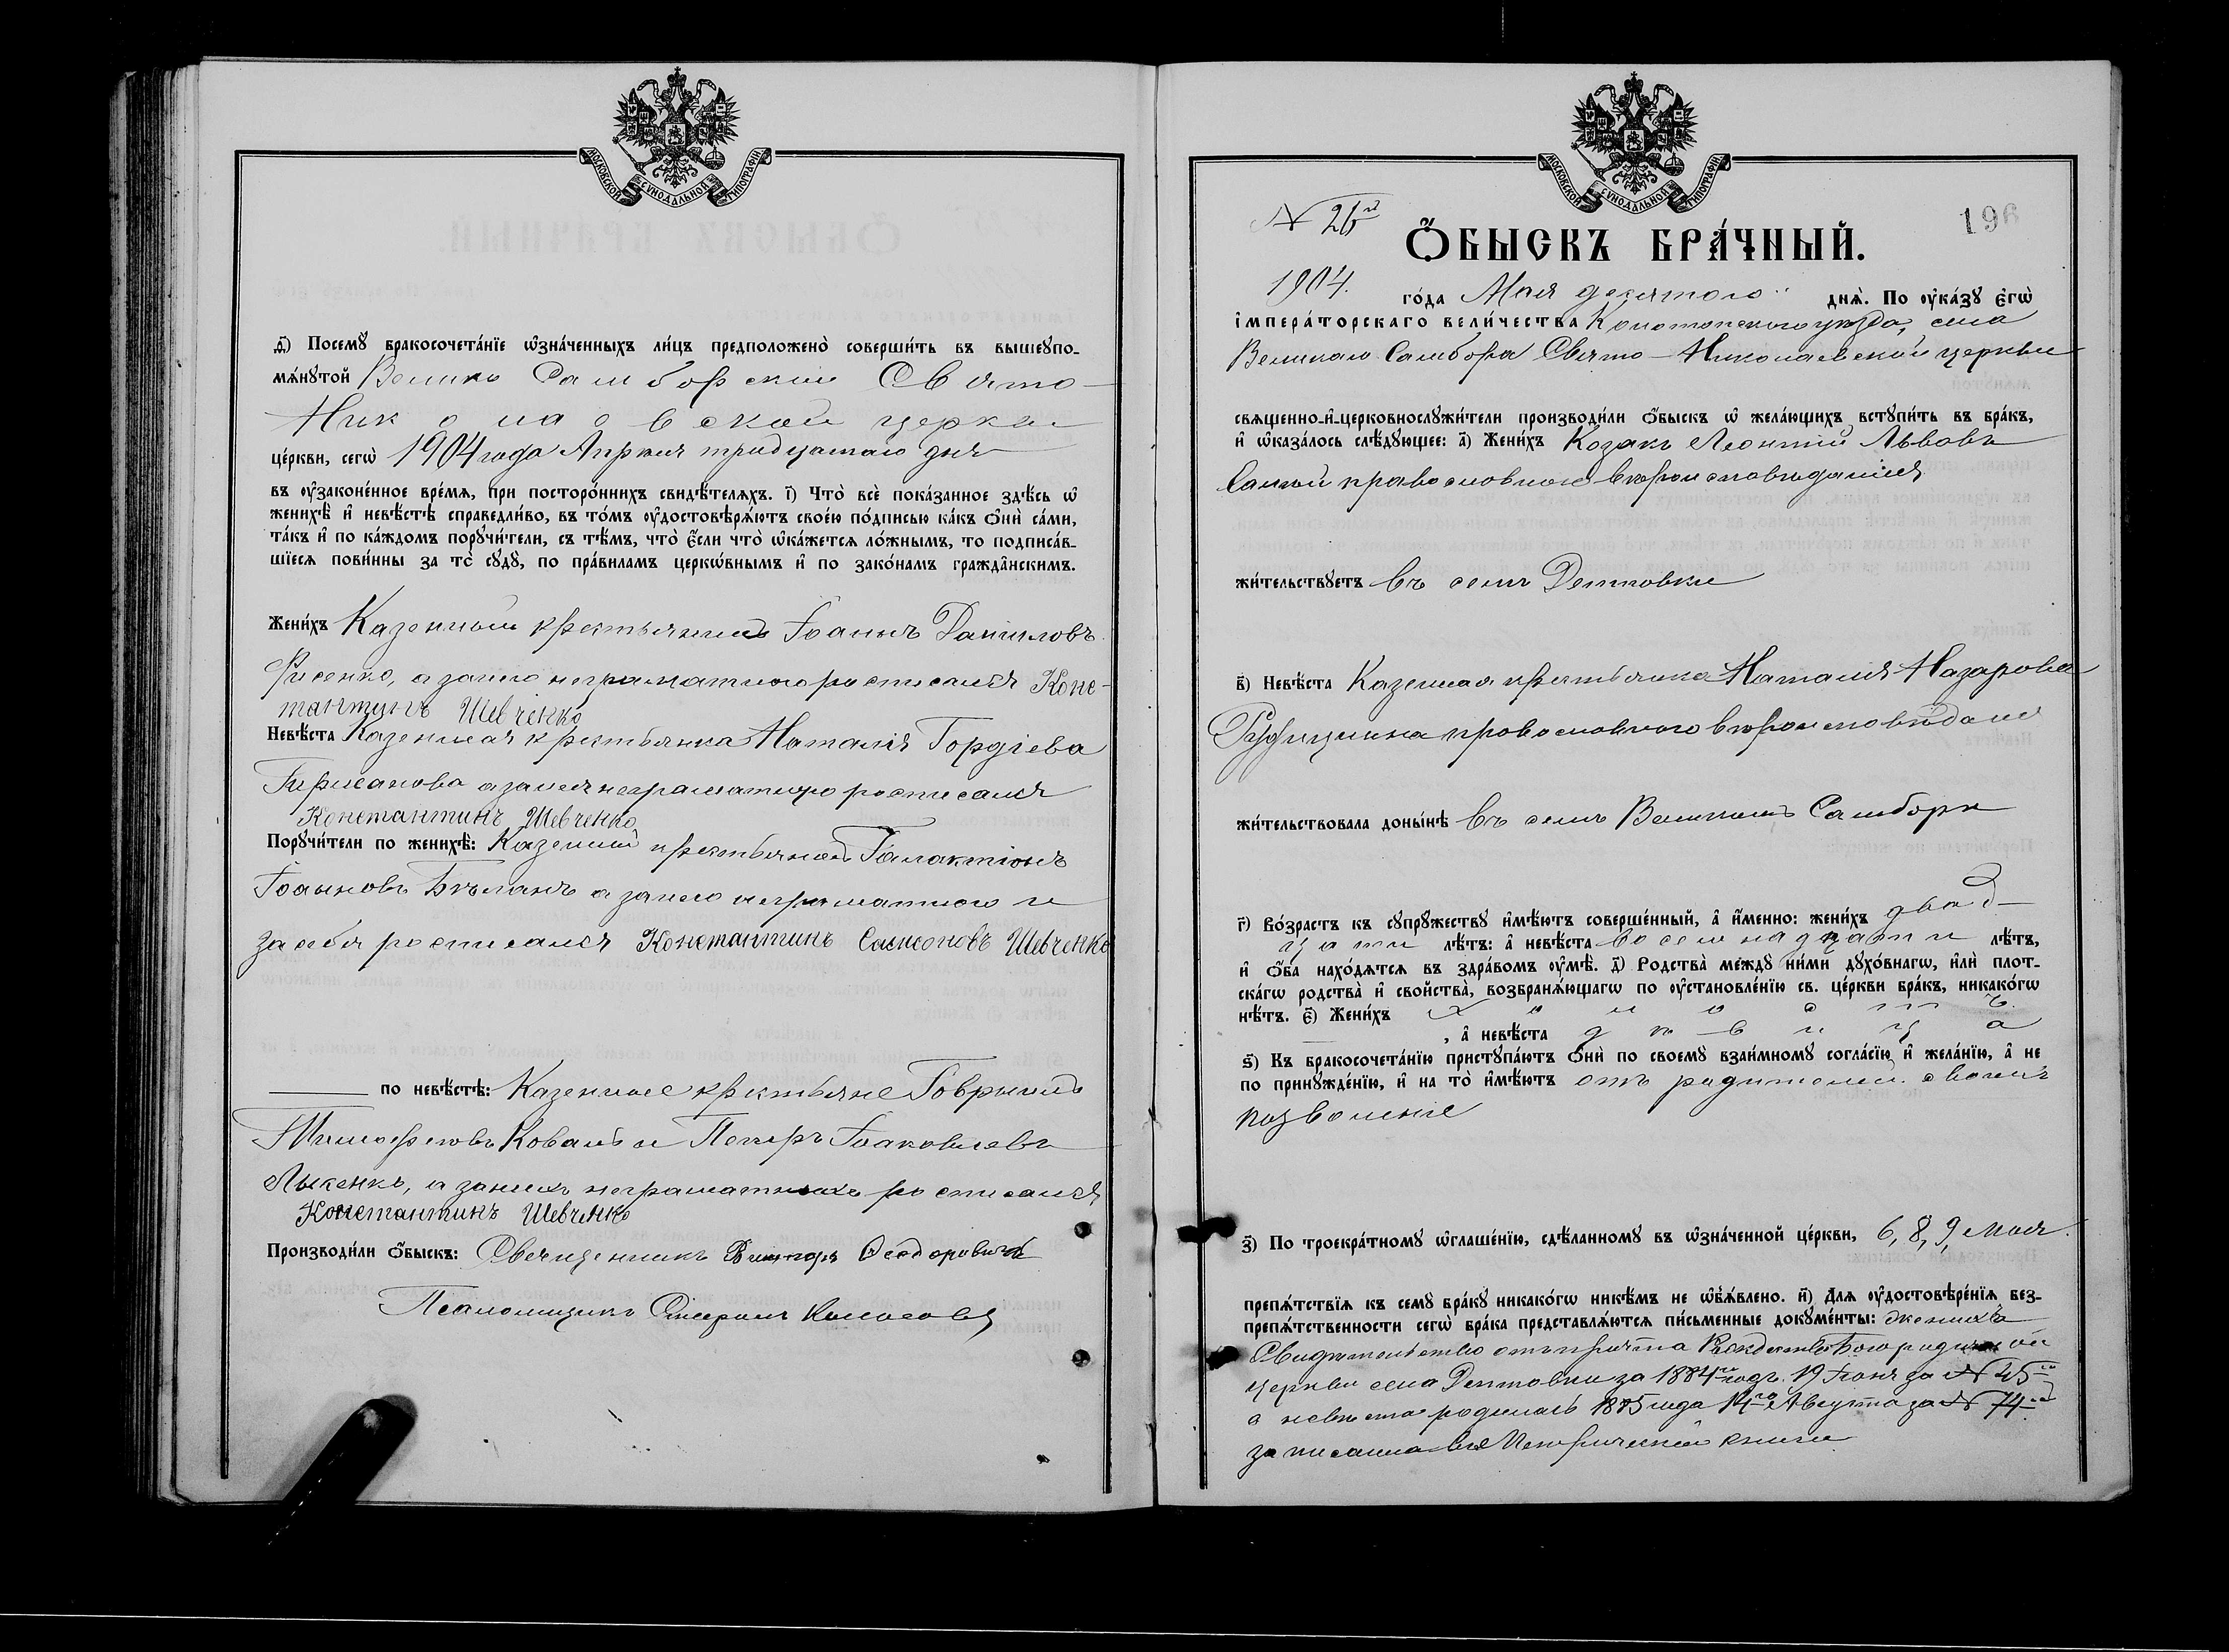 МОСКОВСКОЙ СѴНОДАЛЬНОЙ ТИПОГРАФІИ
д҃) Посемꙋ бракосочета́нїе ѡ҆зна́ченныхъ ли́цъ предположено̀ соверши́ть въ вышеꙋпо-
мѧ́нꙋтой Велико Самборской Свято-
Николаевской церкви
це́ркви, сегѡ̀ 1904 года Апреля тридцатаго дня
въ ᲂу҆законе́нное вре́мѧ, при посторо́ннихъ свидѣ́телѧхъ. і҃) Что̀ всѐ пока́занное здѣ́сь ѡ҆
женихѣ̀ и҆ невѣ́стѣ справедли́во, въ то́мъ ᲂу҆достовѣрѧ́ютъ свое́ю по́дписью ка́къ ѻ҆нѝ са́ми,
та́къ и҆ по ка́ждомъ порꙋчи́тели, съ тѣ́мъ, что̀ є҆́сли что̀ ѡ҆ка́жетсѧ ло́жнымъ, то подписа́в-
шїесѧ пови́нны за то̀ сꙋдꙋ̀, по пра́виламъ церко́внымъ и҆ по зако́намъ гражда́нскимъ.
Жени́хъ Казенный крестьянинъ Іоаннъ Даниловъ
Фисенко, а за него неграматного росписался Конс-
тантинъ Шевченко
Невѣ́ста Казенная крестьянка Наталія Гордіева
а за нея неграматную росписался
Константинъ Шевченко
Порꙋчи́тели по женихѣ̀: Казенный крестьянинъ Галактіонъ
Іоанновъ Бѣланъ а за него неграматного и
за себя росписался Константинъ Самсоновъ Шевченко
по невѣ́стѣ: Казенные крестьяне Гаврыилъ
Тимофеевъ Коваль и Петръ Іоаковлевъ
Лысенко, а за нихъ неграматныхъ росписался
Константинъ Шевченко
Производи́ли ѻ҆́быскъ: Священникъ Викторъ Ѳеодоровичъ
Псаломщикъ
МОСКОВСКОЙ СѴНОДАЛЬНОЙ ТИПОГРАФІИ
N 26й
196
Ѻ҆́БЫСКЪ БРА́ЧНЫЙ.
1904. го́да Мая десятого днѧ̀. По ᲂу҆ка́зꙋ є҆гѡ̀
і҆мпера́торскаго вели́чества Конотопского уѣзда, села
Великаго Самбора Свято-Николаевской церкви
сщ҃е́нно-и҆-церковнослꙋжи́тели производи́ли ѻ҆́быскъ ѡ҆ жела́ющихъ встꙋпи́ть въ бра́къ,
и҆ ѡ҆каза́лось слѣ́дꙋющее: а҃) Жени́хъ Козакъ Леонтій Львовъ
православного вѣроисповѣданія
жи́тельствꙋетъ въ селѣ Дептовки
в҃) Невѣ́ста Казенная крестьянка Наталія Назарова
православного вѣроисповѣданія
жи́тельствовала доны́нѣ въ селѣ Великомъ Самборѣ
г҃) Во́зрастъ къ сꙋпрꙋ́жествꙋ и҆мѣ́ютъ соверше́нный, а҆ и҆́менно: жени́хъ двад-
цати лѣ́тъ: а҆ невѣ́ста восемнадцати лѣ́тъ,
и҆ ѻ҆́ба нахо́дѧтсѧ въ здра́вомъ ᲂу҆мѣ̀. д҃) Родства̀ ме́ждꙋ ни́ми дꙋхо́внагѡ, и҆лѝ плот-
ска́гѡ родства̀ и҆ свойства̀, возбранѧ́ющагѡ по ᲂу҆становле́нїю св. це́ркви бра́къ, никако́гѡ
нѣ́тъ. є҃) Жени́хъ холостъ.
, а҆ невѣ́ста дѣвица
ѕ҃) Къ бракосочета́нїю пристꙋпа́ютъ ѻ҆нѝ по своемꙋ̀ взаи́мномꙋ согла́сїю и҆ жела́нїю, а҆ не
по принꙋжде́нїю, и҆ на то̀ и҆мѣ́ютъ отъ родителей своихъ
позволеніе
з҃) По троекра́тномꙋ ѡ҆глаше́нїю, сдѣ́ланномꙋ въ ѡ҆зна́ченной це́ркви, 6, 8, 9, мая
препѧ́тствїѧ къ семꙋ̀ бра́кꙋ никако́гѡ никѣ́мъ не ѡ҆бъѧ́влено. и҃) Длѧ ᲂу҆достовѣре́нїѧ без-
препѧ́тственности сегѡ̀ бра́ка представлѧ́ютсѧ пи́сьменные докꙋме́нты: жениха
Свидѣтельство отъ причта Рождество Богородичной
церкви села Дептовки за 1884й годъ 19 Іюня за N 25й
а невѣста родилась 1885 года 14го Августа за N 74й
записана въ Метрической книги